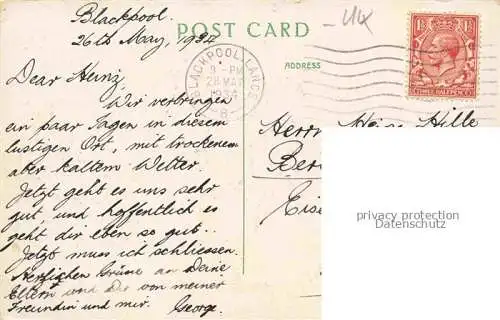 Blackpool.
26th May, 1934
POST CARD
- 414
ADDRESS
BLACKPOOL, LANCS
9 - PM
28 MAY
1934
B
THREE HALFPENCE
Dear Heinz,
Wir verbringen
ein paar Tagen in diesem
lustigen Ort, mit trockenem
aber kaltem Wetter.
Jetzt geht es uns sehr
gut, und hoffentlich es
geht dir eben so gut.
Jetzt muss ich schliessen.
Herzlichen Grüsse an Deine
Eltern und Dir von meiner
Freundin und mir. George.
Herrn Heinz Hille
Ber
Eise
privacy protection
Datenschutz